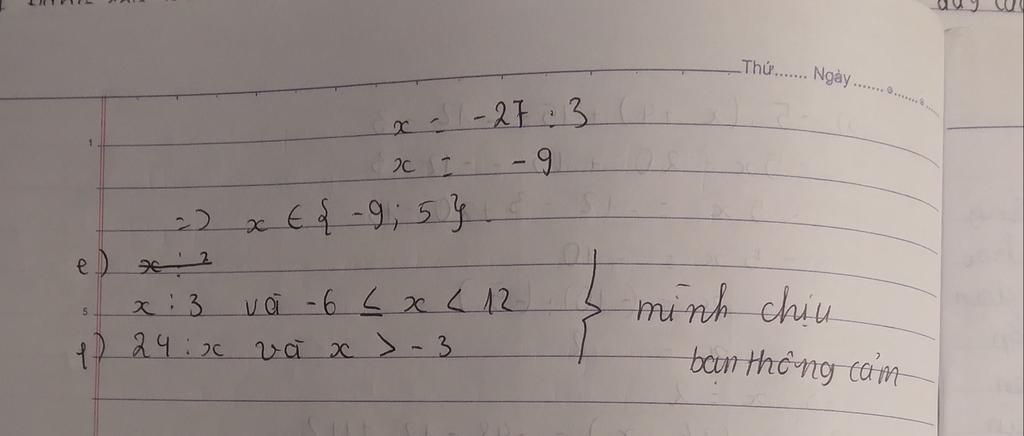 Thứ....... Ngày
x = -27 : 3
x = -9
=> x ∈ { -9 ; 5 }
e) x ⋮ 2
x ⋮ 3 và -6 ≤ x < 12
f) 24 ⋮ x và x > -3
mình chịu
bạn thông cảm